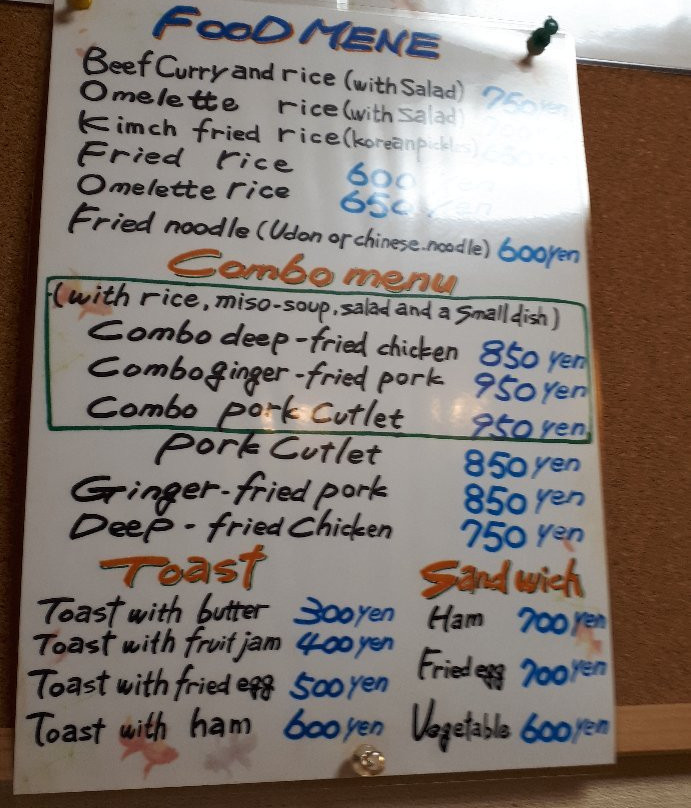 FOOD MENE
Beef Curry and rice (with Salad) 750 yen
Omelette rice (with salad)
Kimch fried rice (korean pickles)
Fried rice 600 yen
Omelette rice 650 yen
Fried noodle (Udon or chinese.noodle) 600yen
Combo menu
(with rice, miso-soup, salad and a Small dish)
Combo deep-fried chicken 850 yen
Combo ginger-fried pork 950 yen
Combo pork Cutlet 950 yen
Pork Cutlet 850 yen
Ginger-fried pork 850 yen
Deep-fried Chicken 750 yen
Toast
Toast with butter 300yen
Toast with fruit jam 400yen
Toast with fried egg 500yen
Toast with ham 600yen
Sandwich
Ham 700yen
Fried egg 700yen
Vegetable 600yen